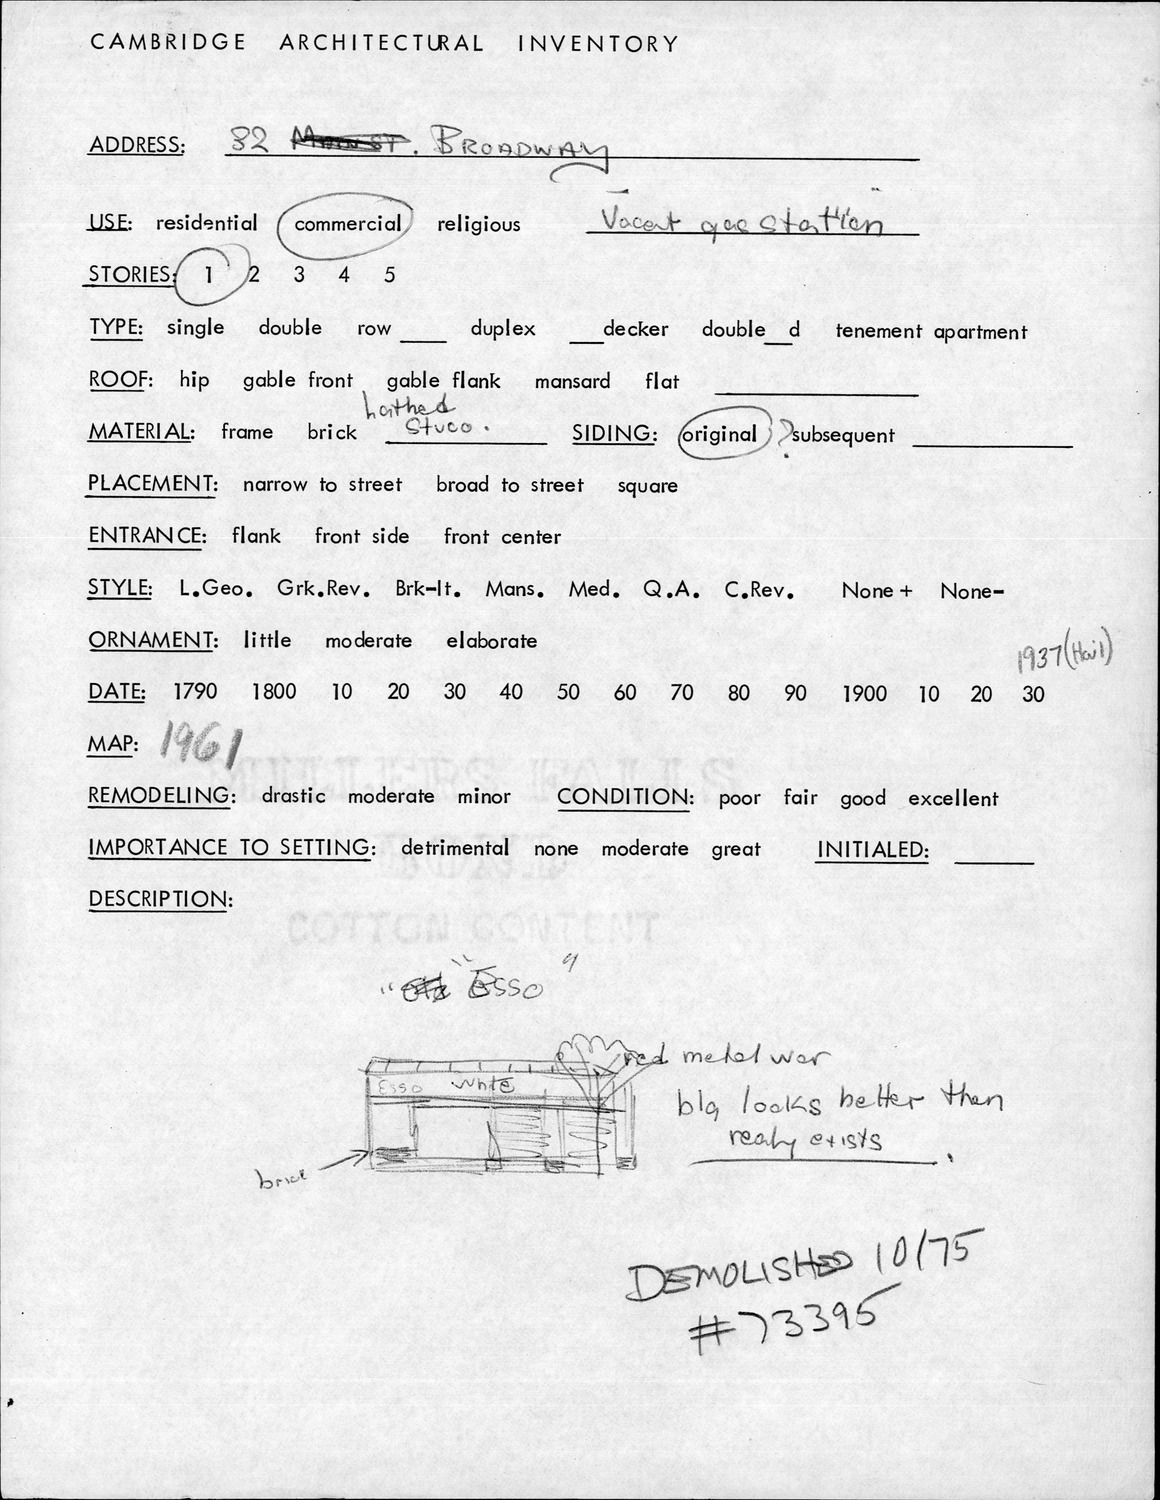 CAMBRIDGE ARCHITECTURAL INVENTORY
ADDRESS: 82 Main St. BROADWAY
USE: residential commercial religious Vacant gas station
STORIES: 1 2 3 4 5
TYPE: single double row ___ duplex ___decker double__d tenement apartment
ROOF: hip gable front gable flank mansard flat
MATERIAL: frame brick lathed stuco. SIDING: original ? subsequent
PLACEMENT: narrow to street broad to street square
ENTRANCE: flank front side front center
STYLE: L.Geo. Grk.Rev. Brk-It. Mans. Med. Q.A. C.Rev. None+ None-
ORNAMENT: little moderate elaborate
1937 (Hail)
DATE: 1790 1800 10 20 30 40 50 60 70 80 90 1900 10 20 30
MAP: 1961
MILLERS FALLS
REMODELING: drastic moderate minor CONDITION: poor fair good excellent
IMPORTANCE TO SETTING: detrimental none moderate great INITIALED:
DESCRIPTION:
COTTON CONTENT
"Esso"
red metal
Esso white
blg looks better than
realy exists.
brick
DEMOLISHED 10/75
#73395